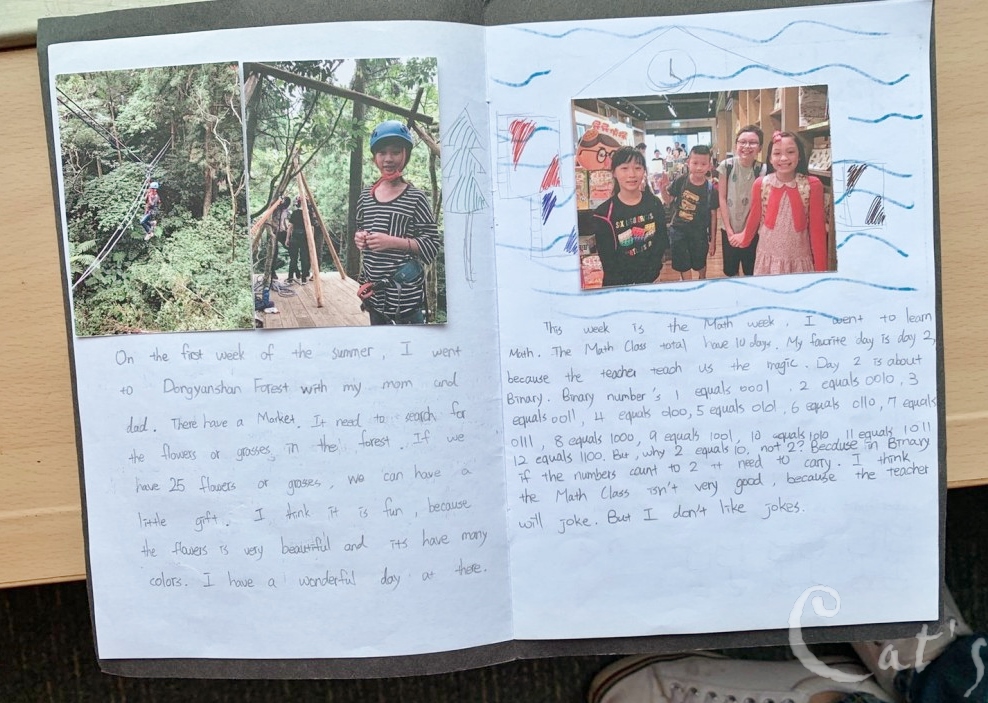 On the first week of the summer, I went
to Dongyanshan Forest with my mom and
dad. There have a Market. It need to search for
the flowers or grasses in the forest. If we
have 25 flowers or grasses, we can have a
little gift. I think it is fun, because
the flowers is very beautiful and its have many
colors. I have a wonderful day at there.
This week is the Math week, I went to learn
Math. The Math Class total have 10 days. My favorite day is day 2,
because the teacher teach us the magic. Day 2 is about
Binary. Binary number's 1 equals 0001, 2 equals 0010, 3
equals 0011, 4 equals 0100, 5 equals 0101, 6 equals 0110, 7 equals
0111, 8 equals 1000, 9 equals 1001, 10 equals 1010, 11 equals 1011
12 equals 1100. But, why 2 equals 10, not 2? Because in Binary
if the numbers count to 2 it need to carry. I think
the Math Class isn't very good, because the teacher
will joke. But I don't like jokes.
Cat's